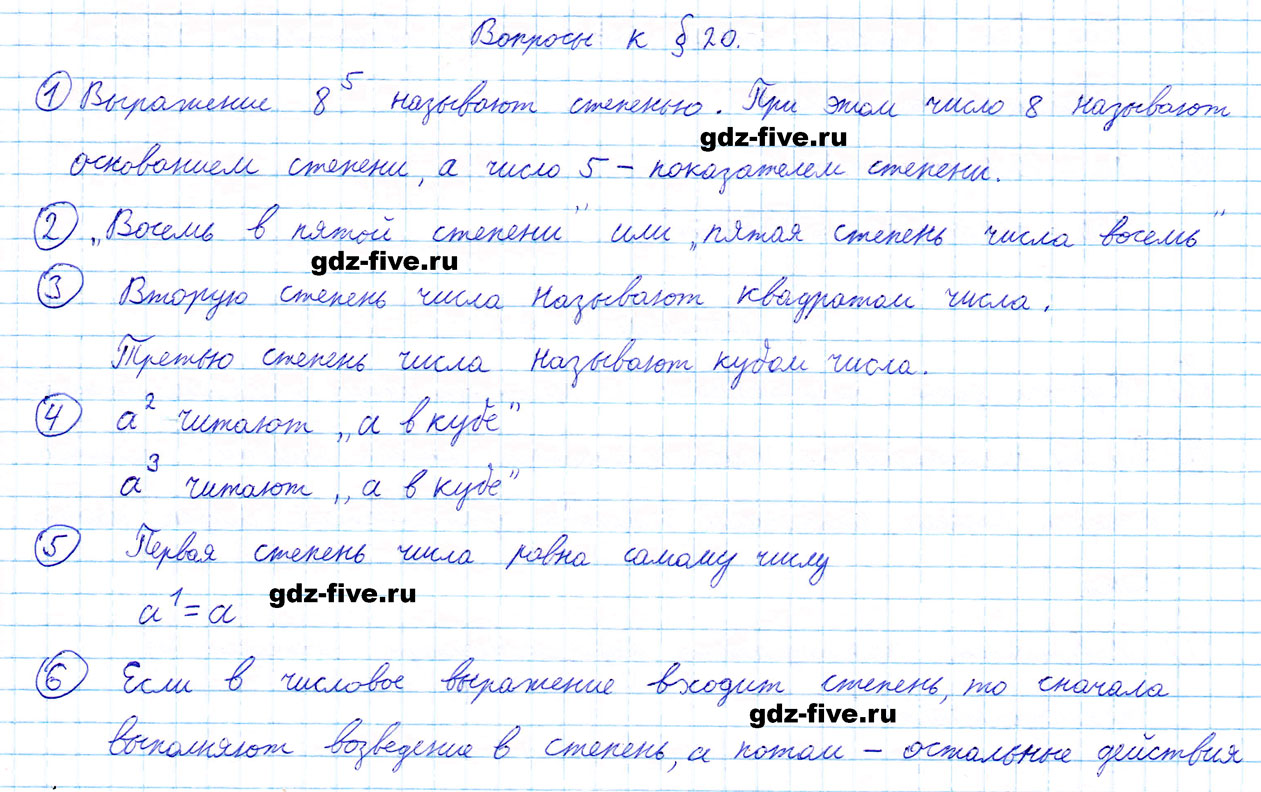 Вопросы к § 20.
1 Выражение 8⁵ называют степенью. При этом число 8 называют
gdz-five.ru
основанием степени, а число 5 – показателем степени.
2 „Восемь в пятой степени" или „пятая степень числа восемь"
gdz-five.ru
3 Вторую степень числа называют квадратом числа.
Третью степень числа называют кубом числа.
4 a² читают „а в кубе"
a³ читают „а в кубе"
5 Первая степень числа равна самому числу
gdz-five.ru
a¹ = a
6 Если в числовое выражение входит степень, то сначала
gdz-five.ru
выполняют возведение в степень, а потом – остальные действия